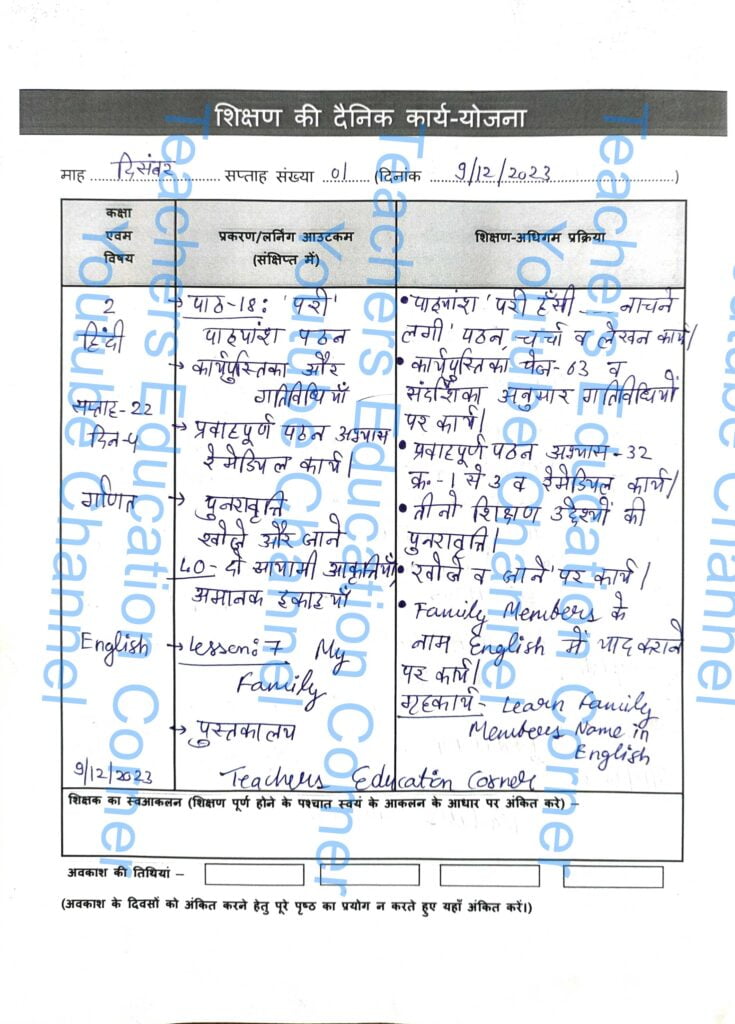 शिक्षण की दैनिक कार्य-योजना
माह दिसंबर सप्ताह संख्या 01 (दिनांक 9/12/2023)
कक्षा एवम विषय
प्रकरण/लर्निंग आउटकम (संक्षिप्त में)
शिक्षण-अधिगम प्रक्रिया
2
हिंदी
सप्ताह-22
दिन-4
→ पाठ-18: 'परी'
पाठ्यांश पठन
→ कार्यपुस्तिका और
गतिविधियाँ
→ प्रवाहपूर्ण पठन अभ्यास
रेमेडियल कार्य।
• पाठ्यांश 'परी हँसी ---- नाचने
लगी' पठन, चर्चा व लेखन कार्य।
• कार्यपुस्तिका पेज-63 व
संदर्शिका अनुसार गतिविधियों
पर कार्य।
• प्रवाहपूर्ण पठन अभ्यास-32
क्र.-1 से 3 व रेमेडियल कार्य।
गणित
→ पुनरावृत्ति
खोजें और जाने
40- दो आयामी आकृतियाँ,
अमानक इकाइयाँ
• तीनो शिक्षण उद्देश्यों की
पुनरावृत्ति।
• 'खोजें व जाने' पर कार्य।
English
→ Lesson: 7 My
Family
→ पुस्तकालय
• Family Members के
नाम English में याद कराने
पर कार्य।
गृहकार्य- Learn Family
Members Name in
English
9/12/2023 Teachers Education Corner
शिक्षक का स्वआकलन (शिक्षण पूर्ण होने के पश्चात स्वयं के आकलन के आधार पर अंकित करे) –
अवकाश की तिथियां –
(अवकाश के दिवसों को अंकित करने हेतु पूरे पृष्ठ का प्रयोग न करते हुए यहाँ अंकित करें।)
Teachers Education Corner
Youtube Channel
Teachers Education Corner
Youtube Channel
Teachers Education Corner
Youtube Channel